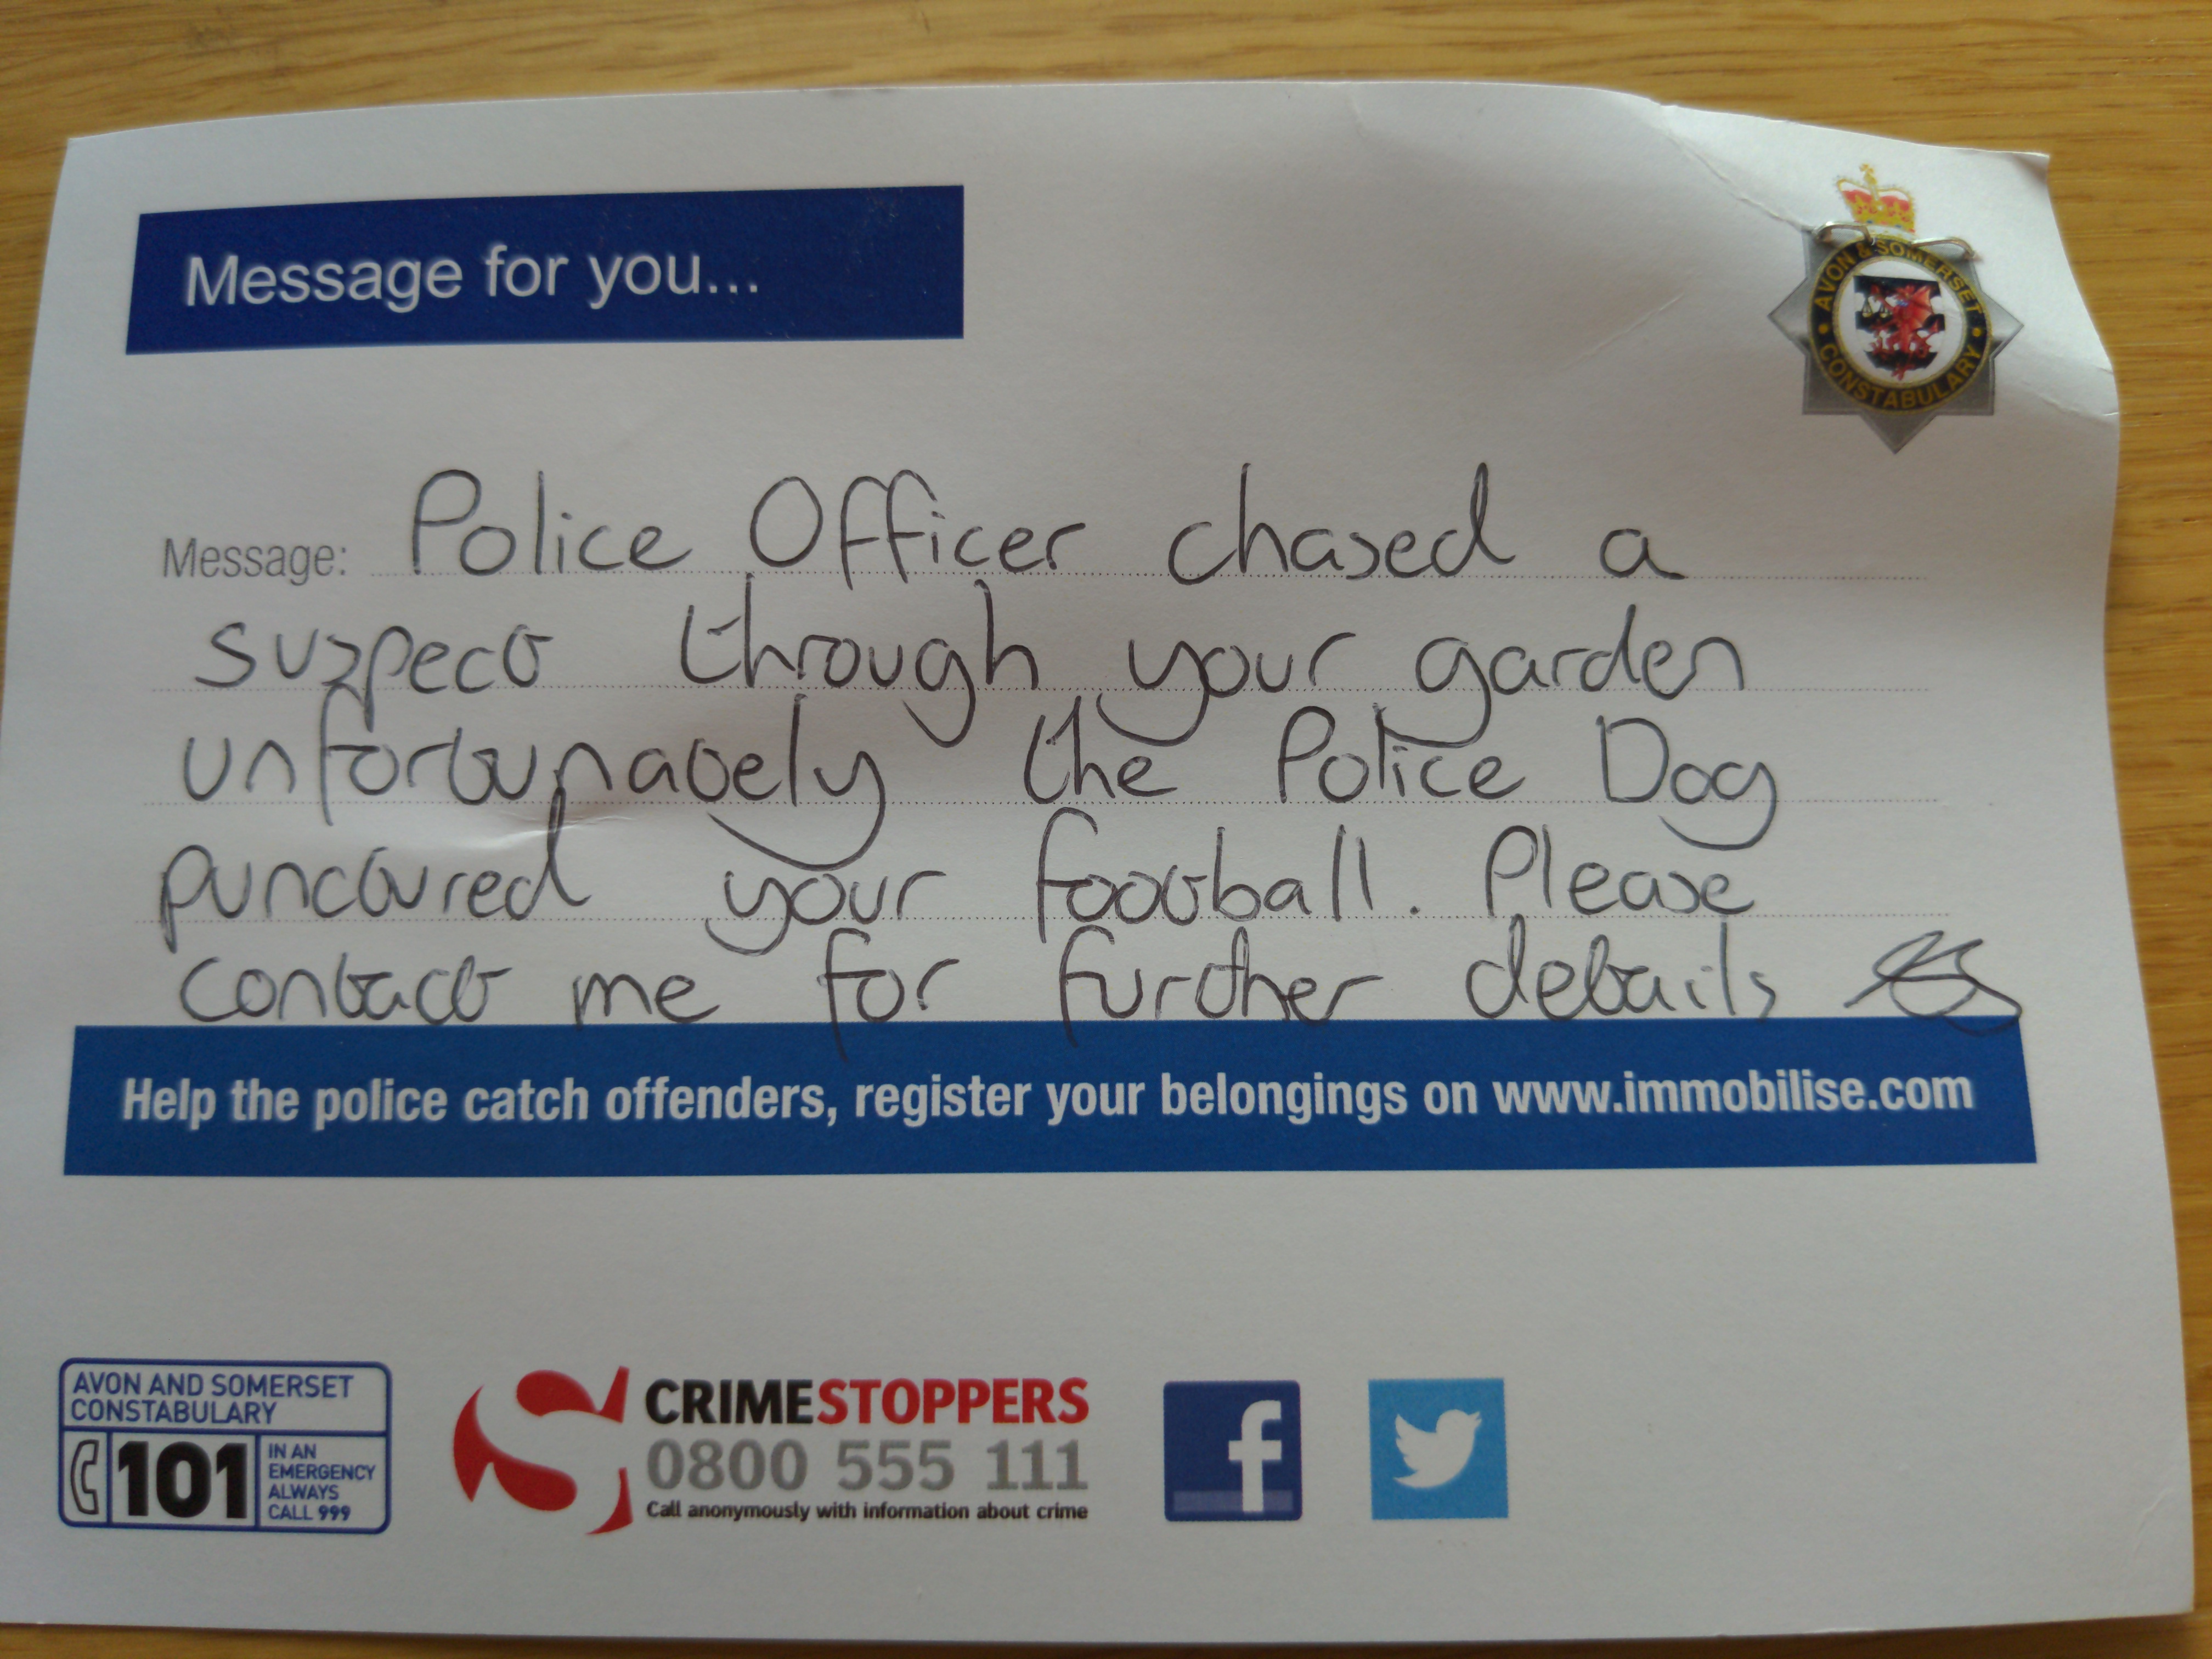 Message for you...
AVON & SOMERSET
CONSTABULARY
Message: Police Officer chased a
suspect through your garden
unfortunately the Police Dog
punctured your football. Please
contact me for further details
Help the police catch offenders, register your belongings on www.immobilise.com
AVON AND SOMERSET
CONSTABULARY
101
IN AN
EMERGENCY
ALWAYS
CALL 999
CRIMESTOPPERS
0800 555 111
Call anonymously with information about crime
f